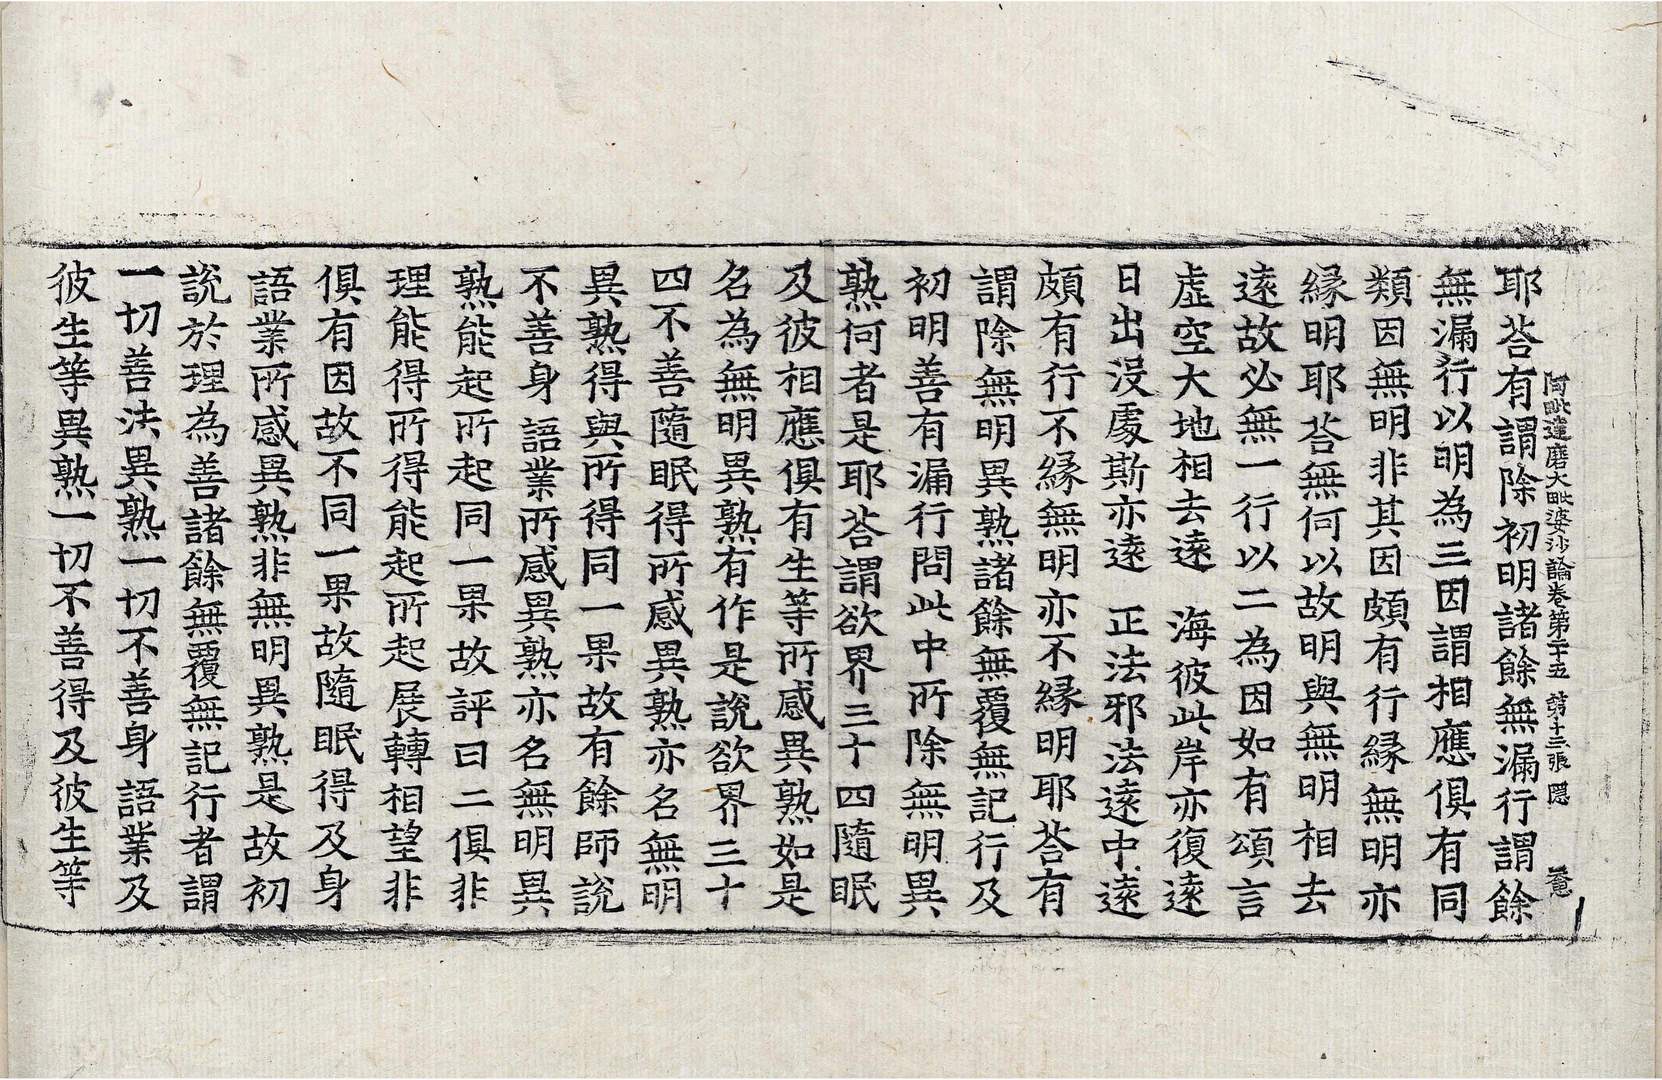 耶荅有謂除初明諸餘無漏行謂餘
無漏行以明為三因謂相應俱有同
類因無明非其因頗有行緣無明亦
緣明耶荅無何以故明與無明相去
遠故必無一行以二為因如有頌言
虛空大地相去遠　海彼此岸亦復遠
日出沒處斯亦遠　正法邪法遠中遠
頗有行不緣無明亦不緣明耶荅有
謂除無明異熟諸餘無覆無記行及
初明善有漏行問此中所除無明異
熟何者是耶荅謂欲界三十四隨眠
及彼相應俱有生等所感異熟如是
名為無明異熟有作是說欲界三十
四不善隨眠得所感異熟亦名無明
異熟得與所得同一果故有餘師說
不善身語業所感異熟亦名無明異
熟能起所起同一果故評曰二俱非
理能得所得能起所起展轉相望非
俱有因故不同一果故隨眠得及身
語業所感異熟非無明異熟是故初
說於理為善諸餘無覆無記行者謂
一切善法異熟一切不善身語業及
彼生等異熟一切不善得及彼生等
阿毗達磨大毗婆沙論卷第二十五　第十三張　隠